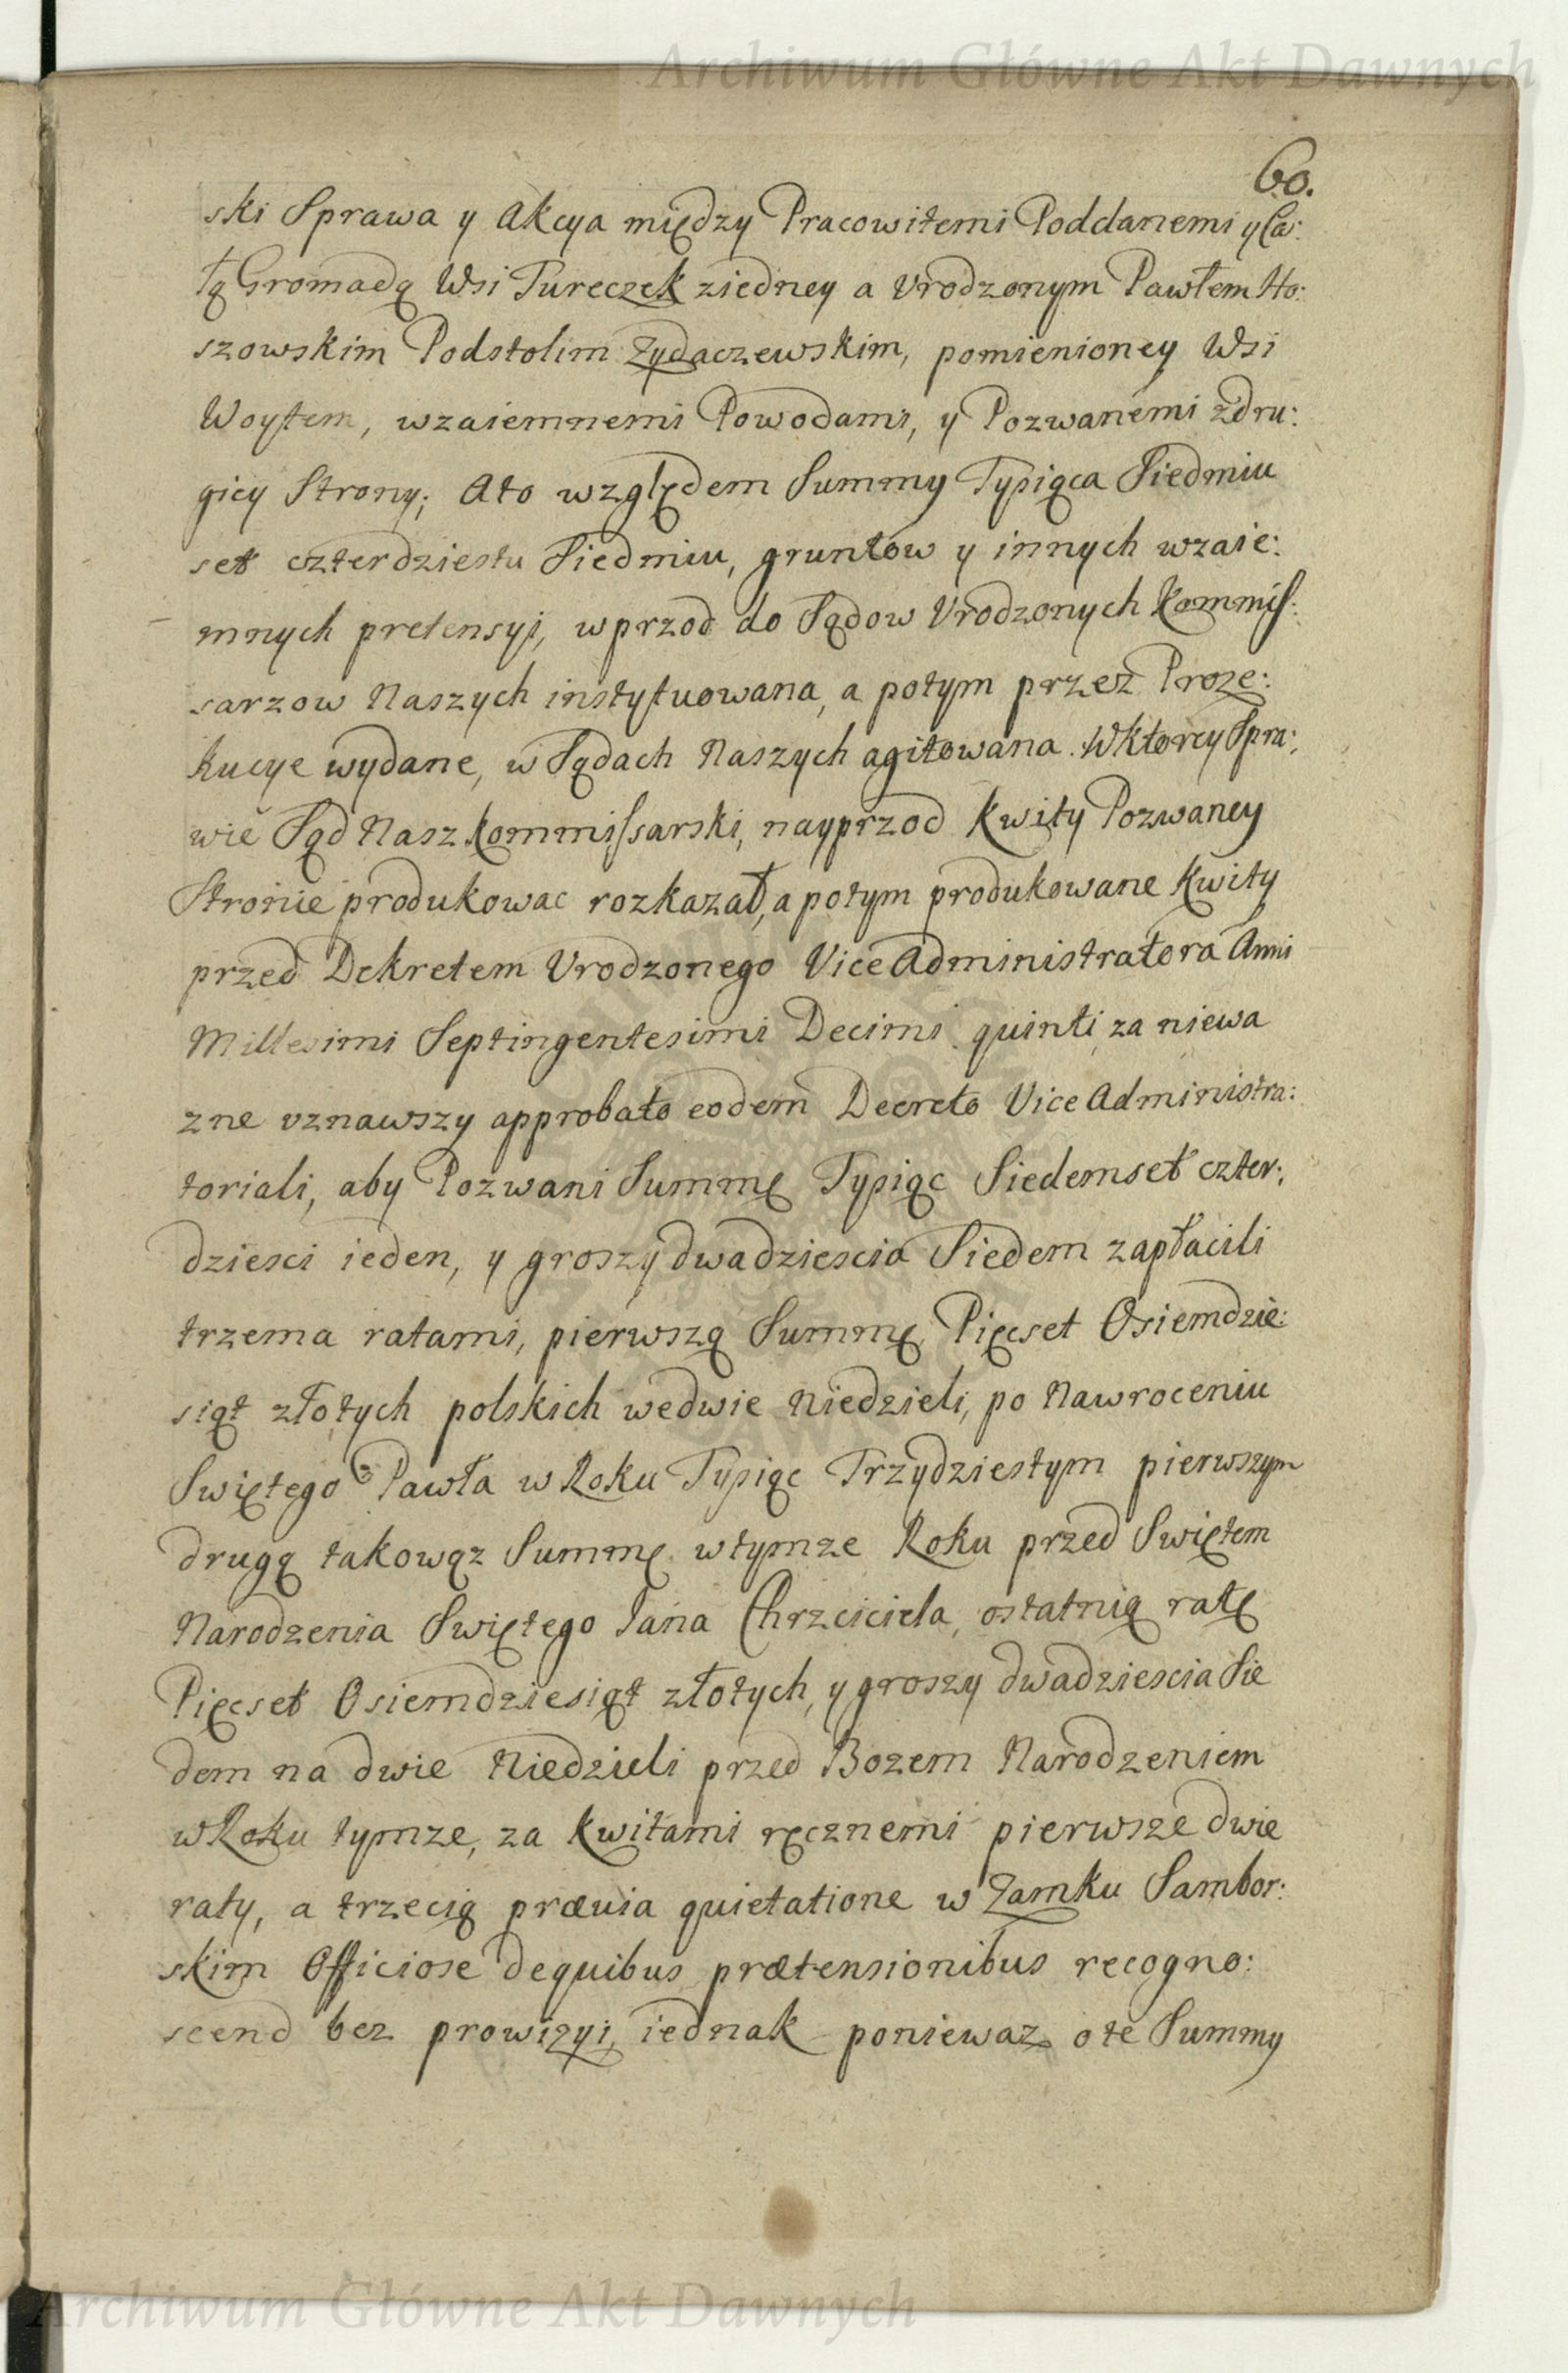 Archiwum Główne Akt Dawnych
60.
ski Sprawa y Akcya między Pracowitemi Poddanemi y Ca:
łą Gromadą Wsi Tureczek ziedney a Vrodzonym Pawłem Ho:
szowskim Podstolim Zydaczewskim, pomienioney Wsi
Woytem, wzaiemnemi Powodami, y Pozwanemi zdru:
giey Strony; Ato względem Summy Tysiąca Siedmiu
set czterdziestu Siedmiu, gruntow y innych wzaie:
mnych pretensyi, wprzod do Sądow Vrodzonych Kommis:
sarzow Naszych instytuowana, a potym przez Proze:
kucye wydane, w Sądach Naszych agitowana. Wktorey Spra:
wie Sąd Nasz Kommissarski, nayprzod Kwity Pozwaney
Stronie produkowac rozkazał, a potym produkowane Kwity
przed Dekretem Vrodzonego Vice Administratora Anni
Millesimi Septingentesimi Decimi quinti, za niewa
zne vznawszy approbato eodem Decreto Vice Administra:
toriali, aby Pozwani Summę Tysiąc Siedemset czter:
dziesci ieden, y groszy dwadziescia Siedem zapłacili
trzema ratami, pierwszą Summę Pięcset Osiemdzie:
siąt złotych polskich wedwie Niedzieli, po Nawroceniu
Swiętego Pawła w Roku Tysiąc Trzydziestym pierwszym
drugą takowąz Summę wtymze Roku przed Swiętem
Narodzenia Swiętego Jana Chrzciciela, ostatnią ratę
Pięcset Osiemdziesiąt złotych, y groszy dwadziescia Sie
dem na dwie Niedzieli przed Bozem Narodzeniem
w Roku tymze, za Kwitami ręcznemi pierwsze dwie
raty, a trzecią prævia quietatione w Zamku Sambor:
skim Officiose de quibus prætensionibus recogno:
scend bez prowizyi, iednak poniewaz o te Summy
Archiwum Główne Akt Dawnych